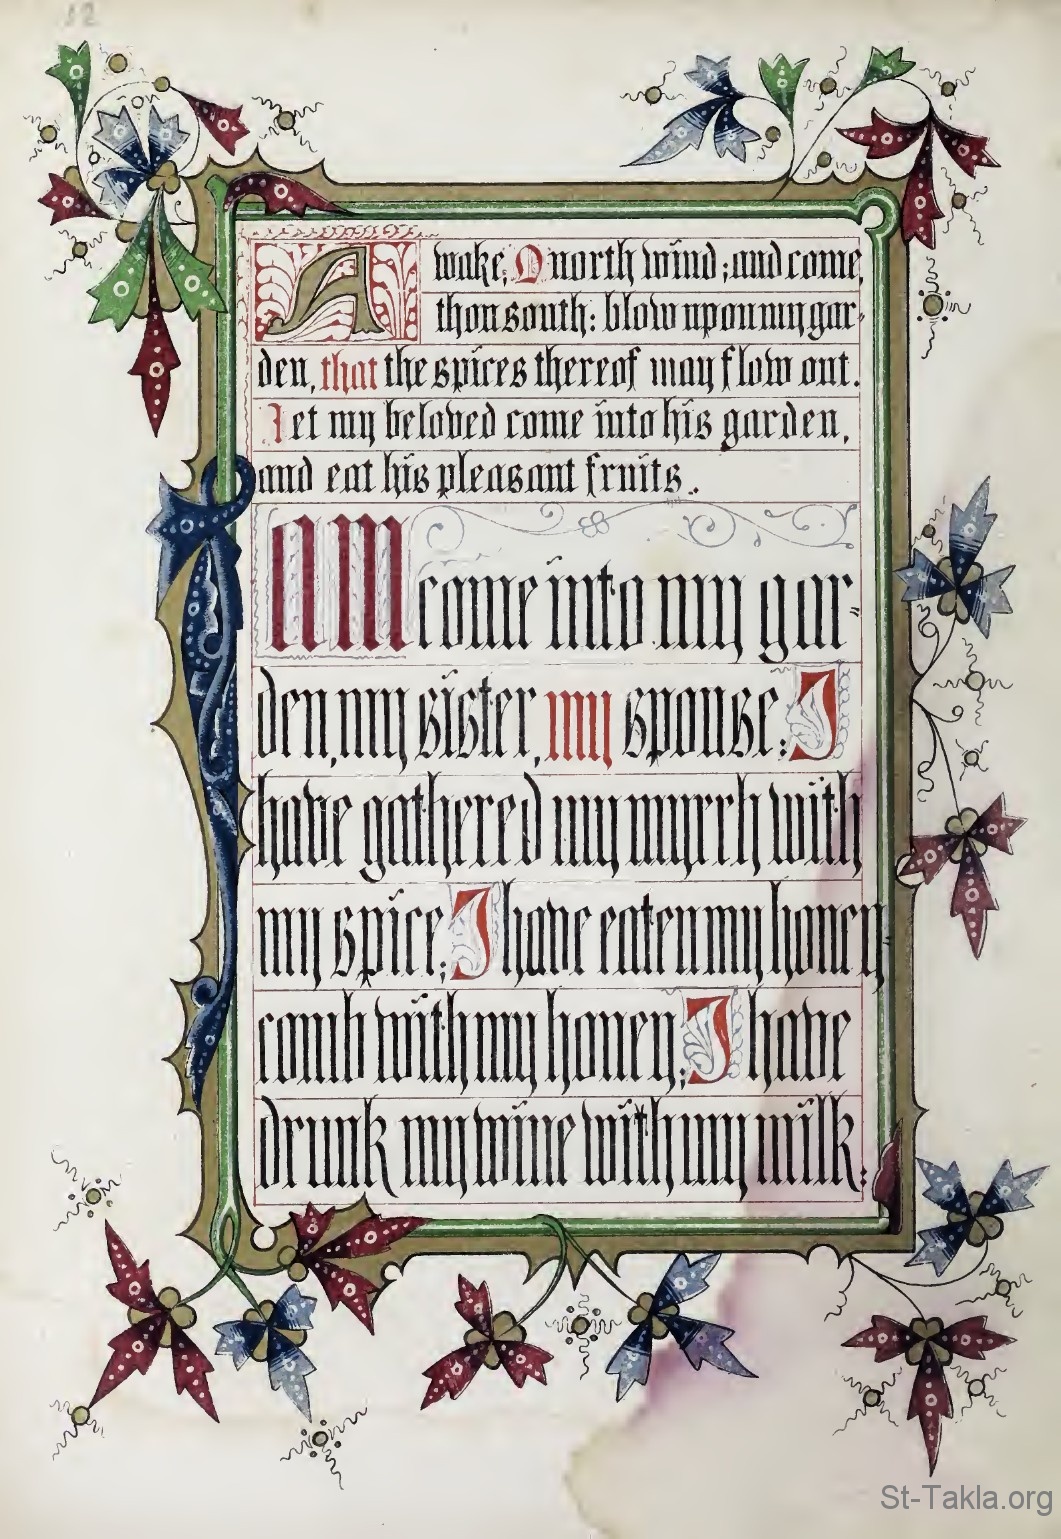 12
Awake, O north wind; and come,
thou south: blow upon my gar-
den, that the spices thereof may flow out.
Let my beloved come into his garden,
and eat his pleasant fruits.
AM come into my gar-
den, my sister, my spouse: I
have gathered my myrrh with
my spice; I have eaten my honey
comb with my honey; I have
drunk my wine with my milk:
St-Takla.org